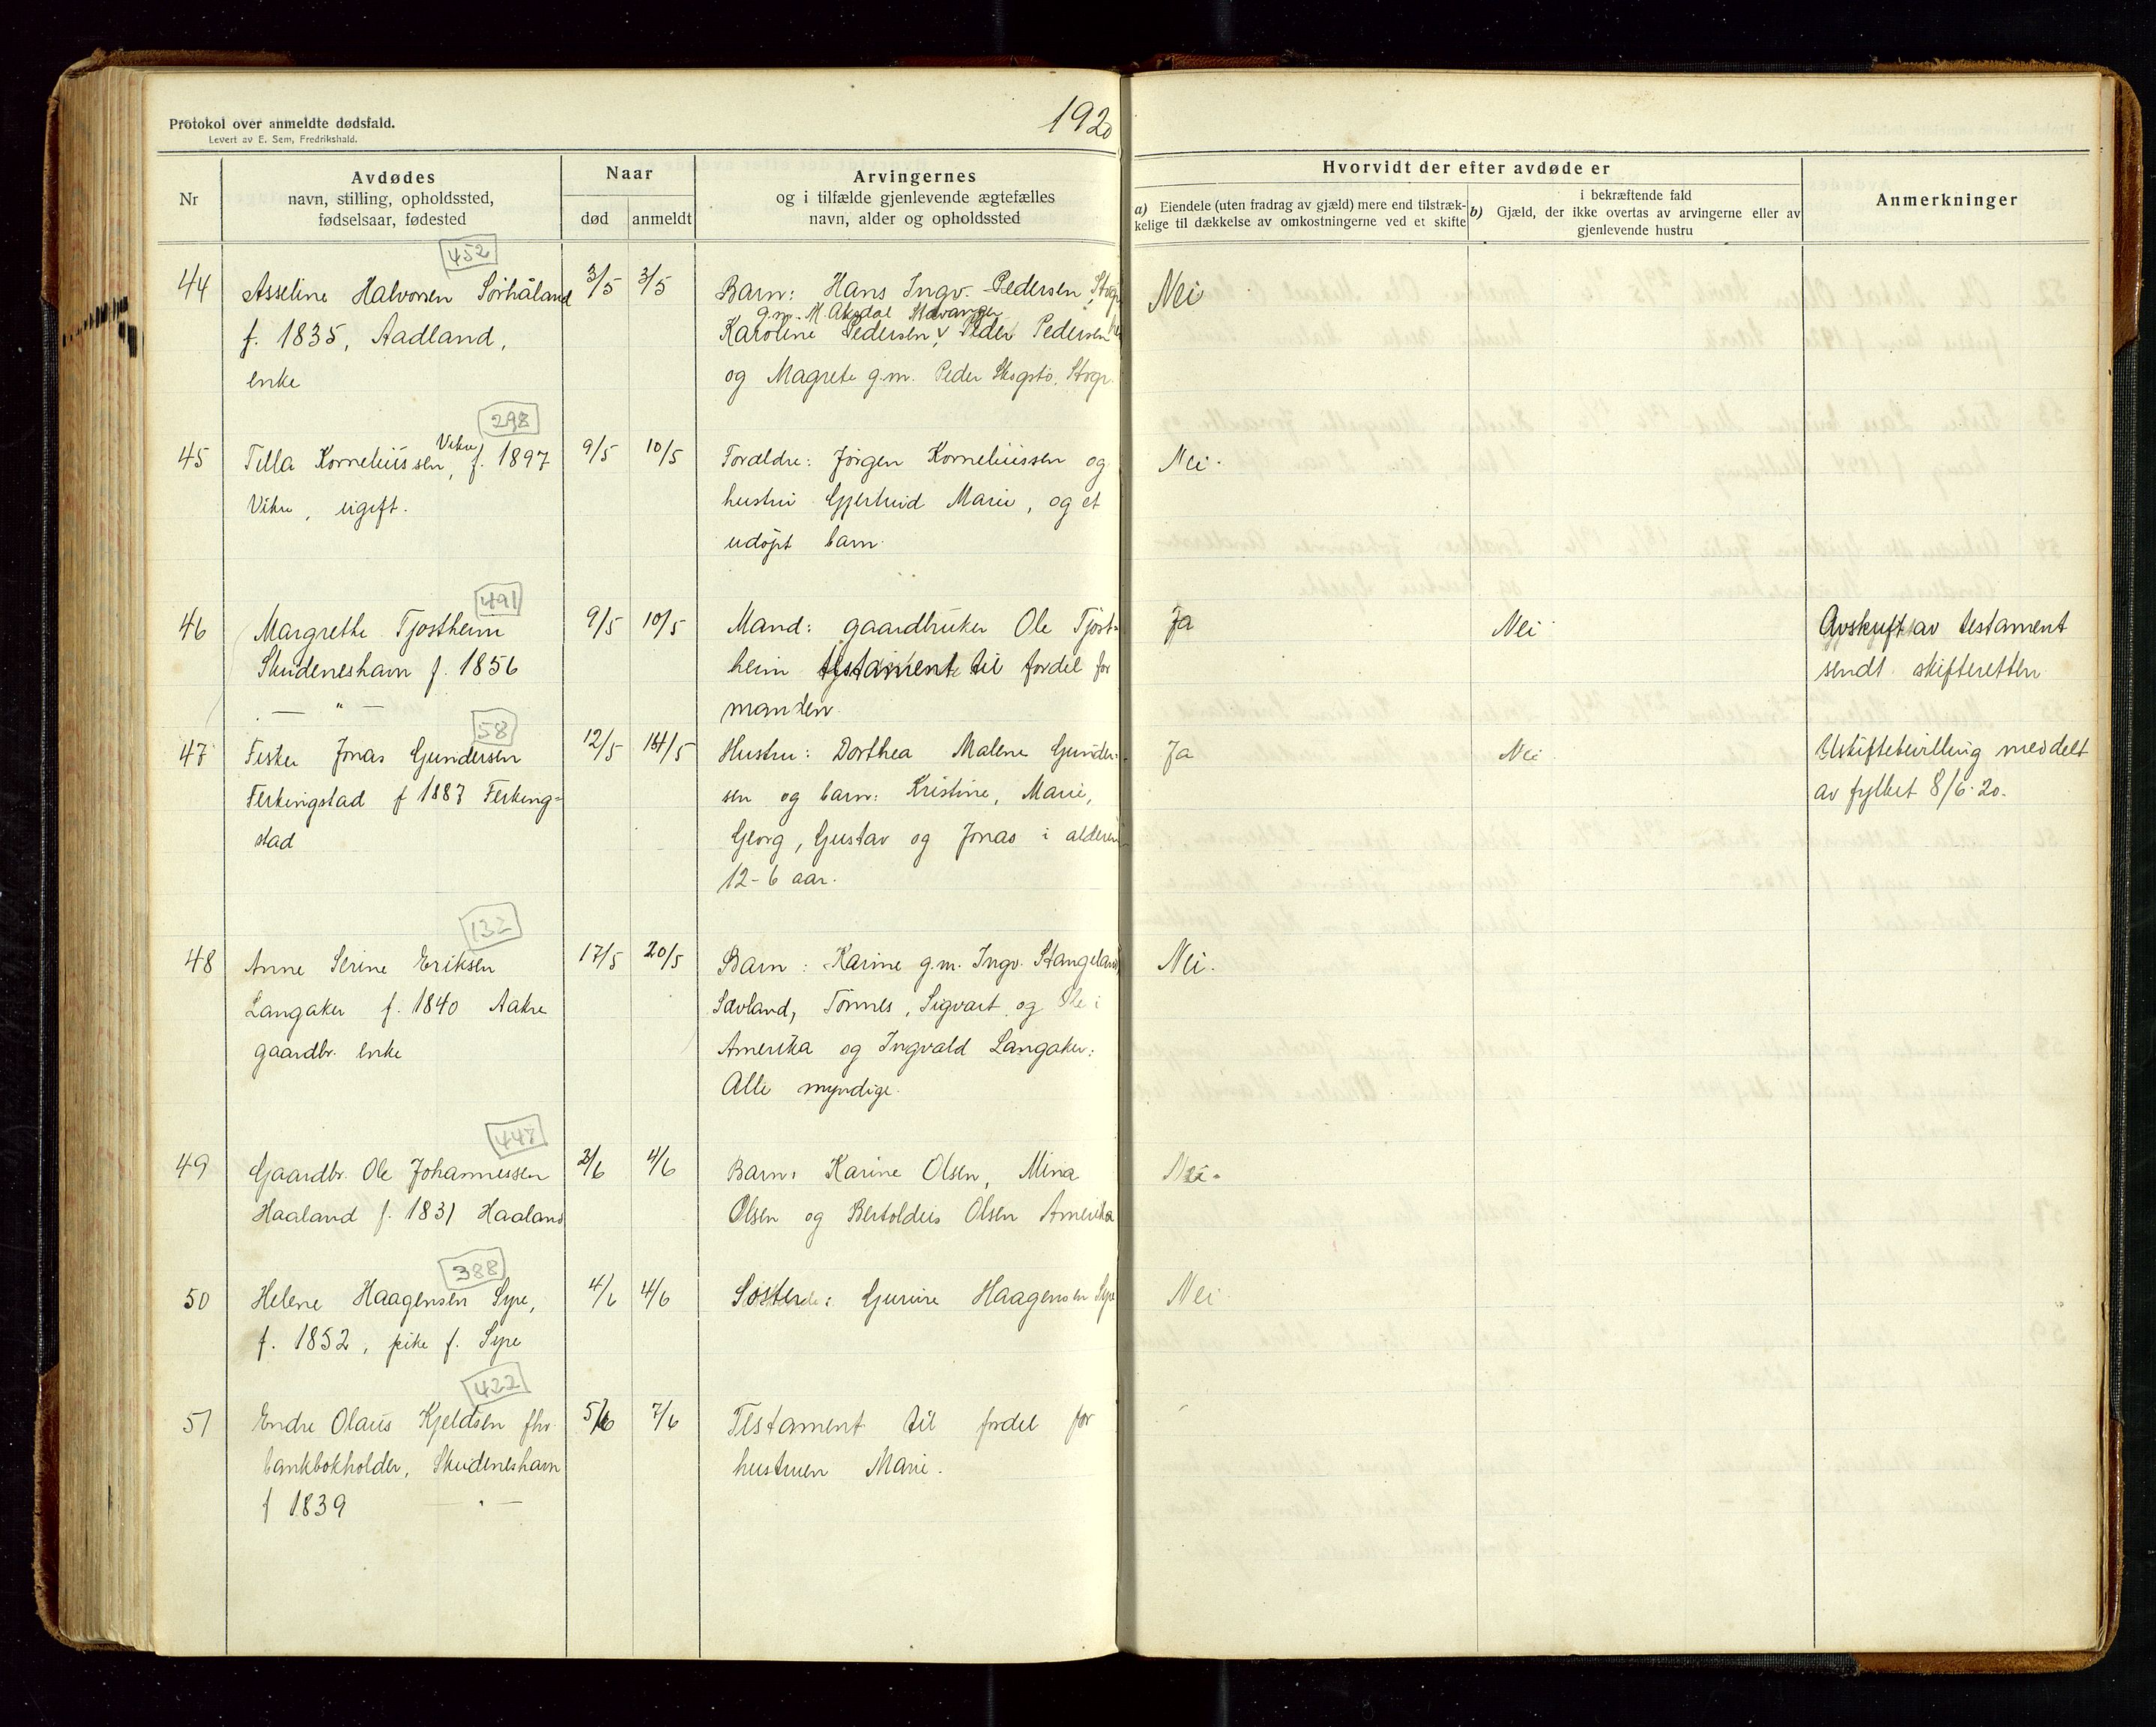 Protokol over anmeldte dødsfald.
Levert av E. Sem, Fredrikshald.
1920
Nr
Avdødes
navn, stilling, opholdssted,
fødselsaar, fødested
Naar
død
anmeldt
Arvingernes
og i tilfælde gjenlevende ægtefælles
navn, alder og opholdssted
Hvorvidt der efter avdøde er
a) Eiendele (uten fradrag av gjæld) mere end tilstræk-
kelige til dækkelse av omkostningerne ved et skifte
i bekræftende fald
b) Gjæld, der ikke overtas av arvingerne eller av
gjenlevende hustru
Anmerkninger
452
44 Asseline Halvorsen Sørhåland 3/5 3/5 Barn: Hans Ingv. Pedersen, Stvgr Nei
g.m. M. Aksdal Stavanger
f. 1835, Aadland, Karoline Pedersen, Peder Pedersen
enke og Magrete g.m. Peder Skogstø, Stvgr.
298
Vikre
45 Tilla Korneliussen, f. 1897 9/5 10/5 Foraldre: Jørgen Korneliussen og Nei.
Vikre, ugift. hustru Gjertrud Marie, og et
udøpt barn.
491
46 Margrethe Tjøstheim 9/5 10/5 Mand: gaardbruker Ole Tjøst= Ja Nei Avskrift av testament
Skudeneshavn f. 1856 heim testament til fordel for sendt skifteretten
— " — manden.
58
47 Fisker Jonas Gundersen 12/5 14/5 Hustru: Dorthea Malene Gunder- Ja Nei Uskiftebevilling meddelt
Ferkingstad f 1887 Ferking= sen og barn: Kristine, Marie, av fylket 8/6-20.
stad Georg, Gustav og Jonas i alderen
12-6 aar.
132
48 Anne Serine Eriksen 17/5 20/5 Barn: Karine g.m. Ingv. Stangeland Nei.
Langaker f. 1840 Aakre Sævland, Tønnes, Sigvart og Ole i
gaardbr. enke Amerika og Ingvald Langaker.
Alle myndige.
447
49 Gaardbr. Ole Johannessen 3/6 4/6 Barn: Karine Olsen, Mina Nei.
Haaland f. 1831 Haaland Olsen og Bertoldus Olsen Amerika
388
50 Helene Haagensen Syre, 4/6 4/6 Søster: Gurine Haagensen Syre Nei
f. 1852, pike f. Syre
422
51 Endre Olaus Kjeldsen fhv. 5/6 7/6 Testament til fordel for
bankbokholder, Skudeneshavn hustruen Marie.
f 1839 — " —